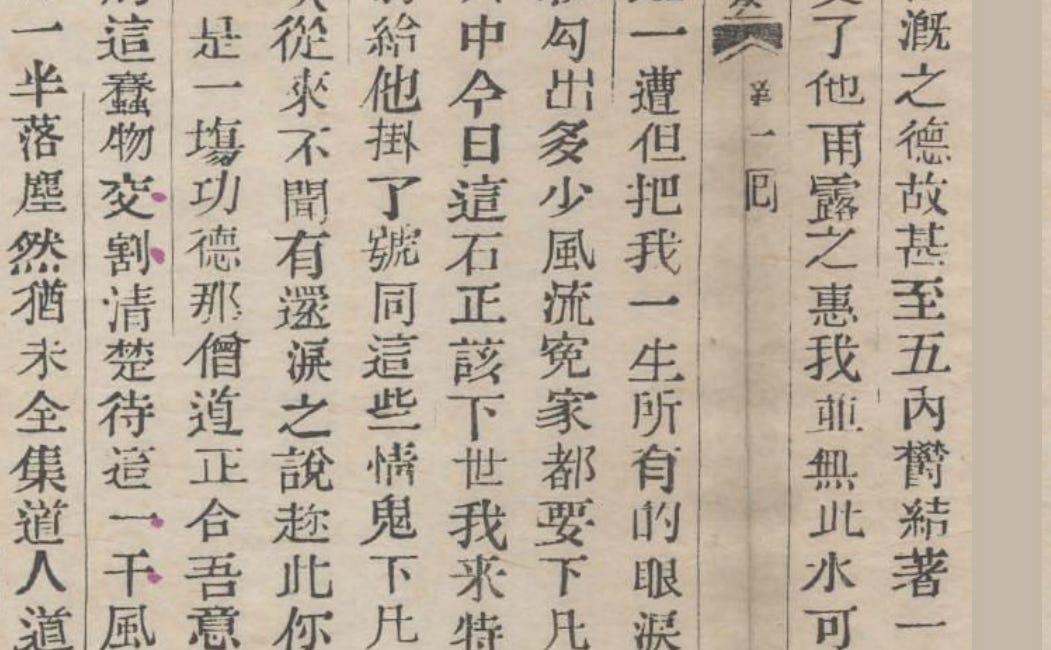 漑之德故甚至五內欝結著一
了他雨露之惠我並無此水可
第一囘
一遭但把我一生所有的眼淚
勾出多少風流寃家都要下凡
中今日這石正該下世我来特
給他掛了號同這些情鬼下凡
從來不聞有還淚之說趂此你
是一塲功德那僧道正合吾意
這蠢物交割清楚待這一干風
一半落塵然猶未全集道人道